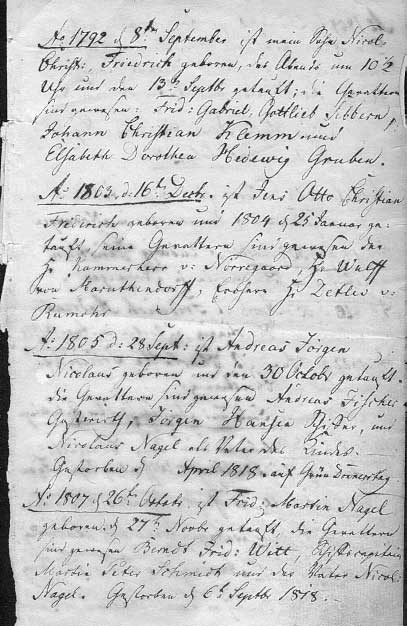 Ao 1792 d 8ten September ist mein Sohn Nicol:
Christ: Friedrich geboren, des Abends um 10½
Uhr und den 13ten Septbr getauft; die Gevattern
sind gewesen: Frid: Gabriel, Gottlieb Sibbern,
Johann Christian Klemm und
Elsabeth Dorothea Hedewig Gruben.
Ao 1803, d. 16t Decbr. ist Jens Otto Christian
Friedrich geboren und 1804 d 25 Januar ge-
tauft seine Gevattern sind gewesen der
Hr Kammerherr v: Nörregaard, Hr Wulff
von, Hr Detlev v:
Rumohr
Ao: 1805 d: 28 Sept: ist Andreas Jörgen
Nicolaus geboren und den 30 Octobr getauft.
die Gevattern sind gewesen Andreas Fischer
Gastwirth, Jörgen Hansen, und
Nicolaus Nagel als Vater des Kindes.
Gestorben d April 1818. auf Gründonnerstag
Ao 1807 d 26t Octobr ist Frid: Martin Nagel
geboren. d 27t Novbr getauft, die Gevattern
sind gewesen Berndt Frid: Witt, Schiffscapitain
Martin Peter Schmidt und der Vater Nicol:
Nagel. Gestorben d 6t Septbr 1818.